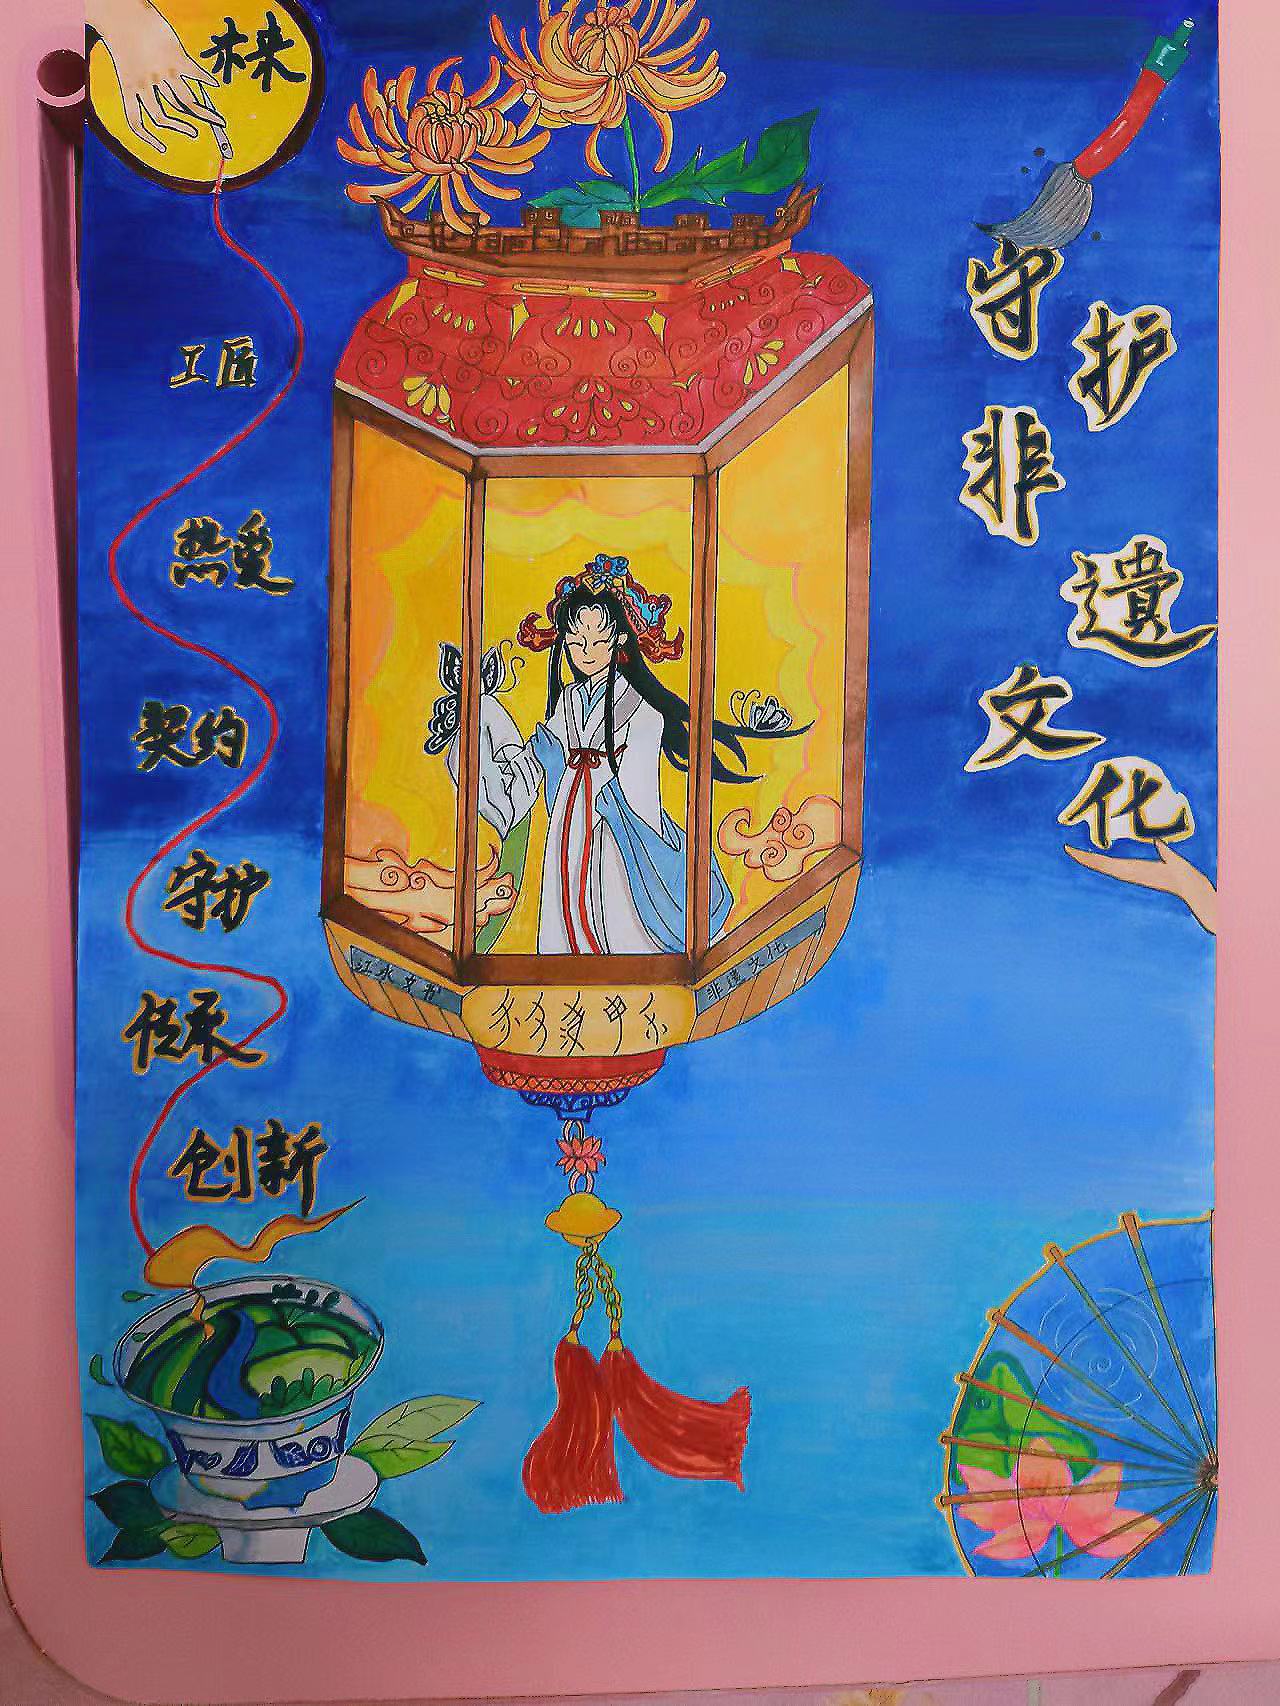 未来
工匠
热爱
契约
守护
传承
创新
守护非遗文化
江永女书
非遗文化